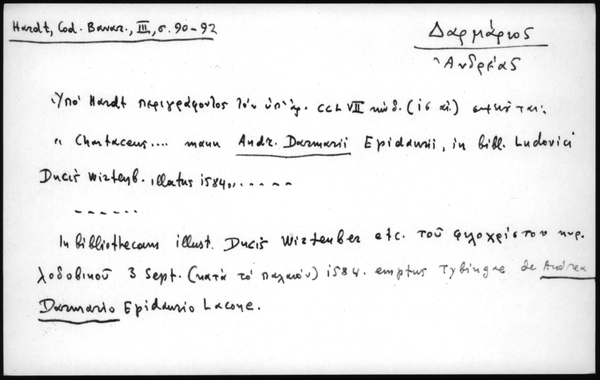 Hardt, Cod. Bavar., III, σ. 90-92
Δαρμάριος
Ἀνδρέας
Ὑπό Hardt περιγράφοντος τόν ὑπ' ἀρ. CCLVII κώδ. (ις αἰ.) σημειοῦται:
" Chartaceus.... manu Andr. Darmarii Epidaurii, in bibl. Ludovici
Ducis Wirtenb. illatus 1584,, -----
------
In bibliothecam illust. Ducis Wirtenber etc. τοῦ φιλοχρίστου κυρ.
λοδοβικοῦ 3 Sept. (κατά τό παλαιόν) 1584. emptus Tybingae de Andrea
Darmario Epidaurio Lacone.